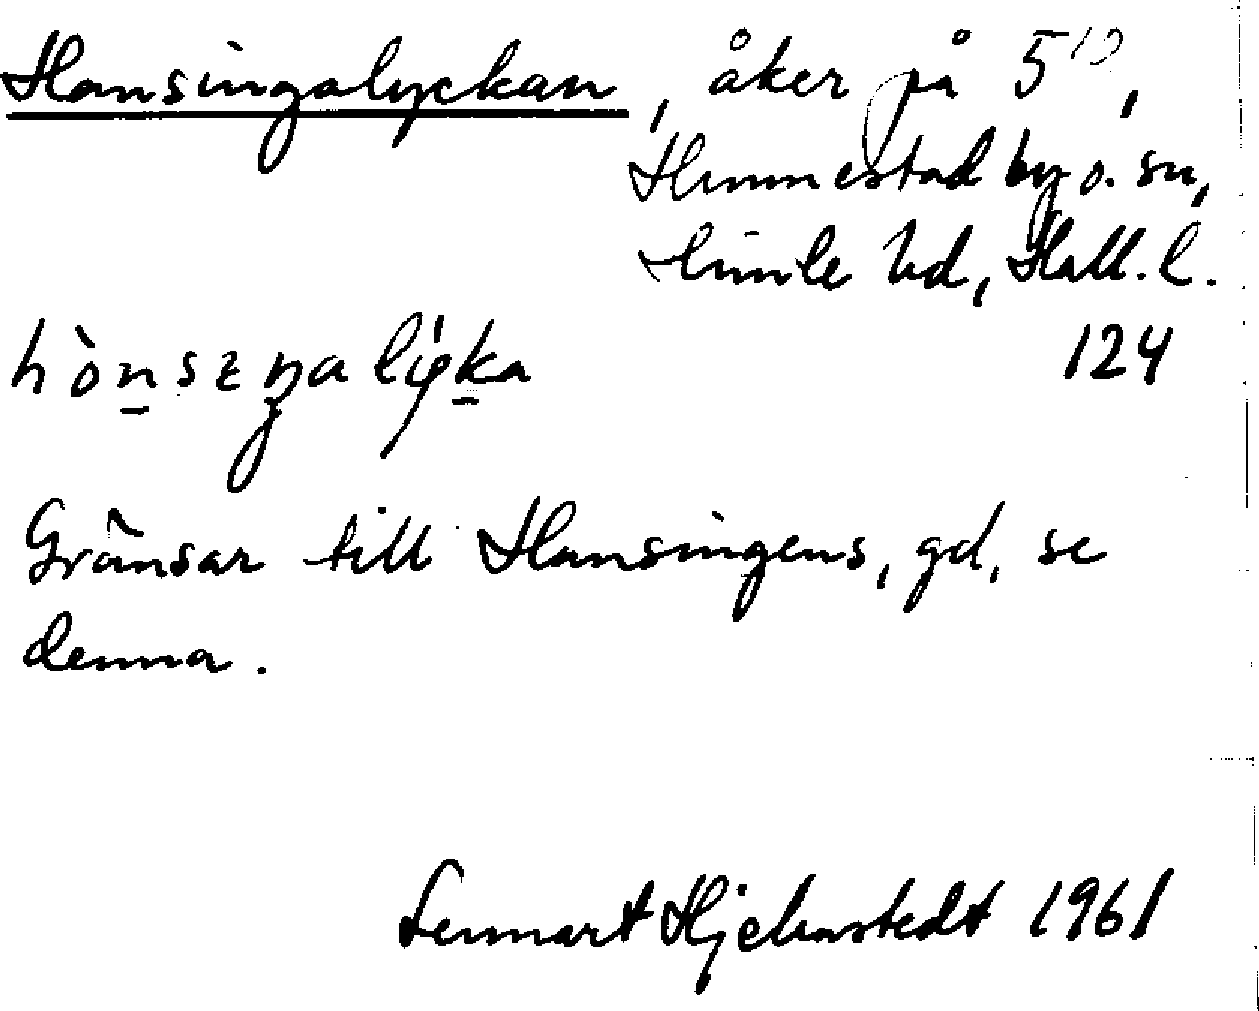 Hansingalyckan, åker på 5¹⁰,
Hunnestad by o. sn,
Himle hd, Hall. l.
hònsɛŋalyka 124
Gränsar till Hansingens, gd, se
denna.
Lennart Hjelmstedt 1961